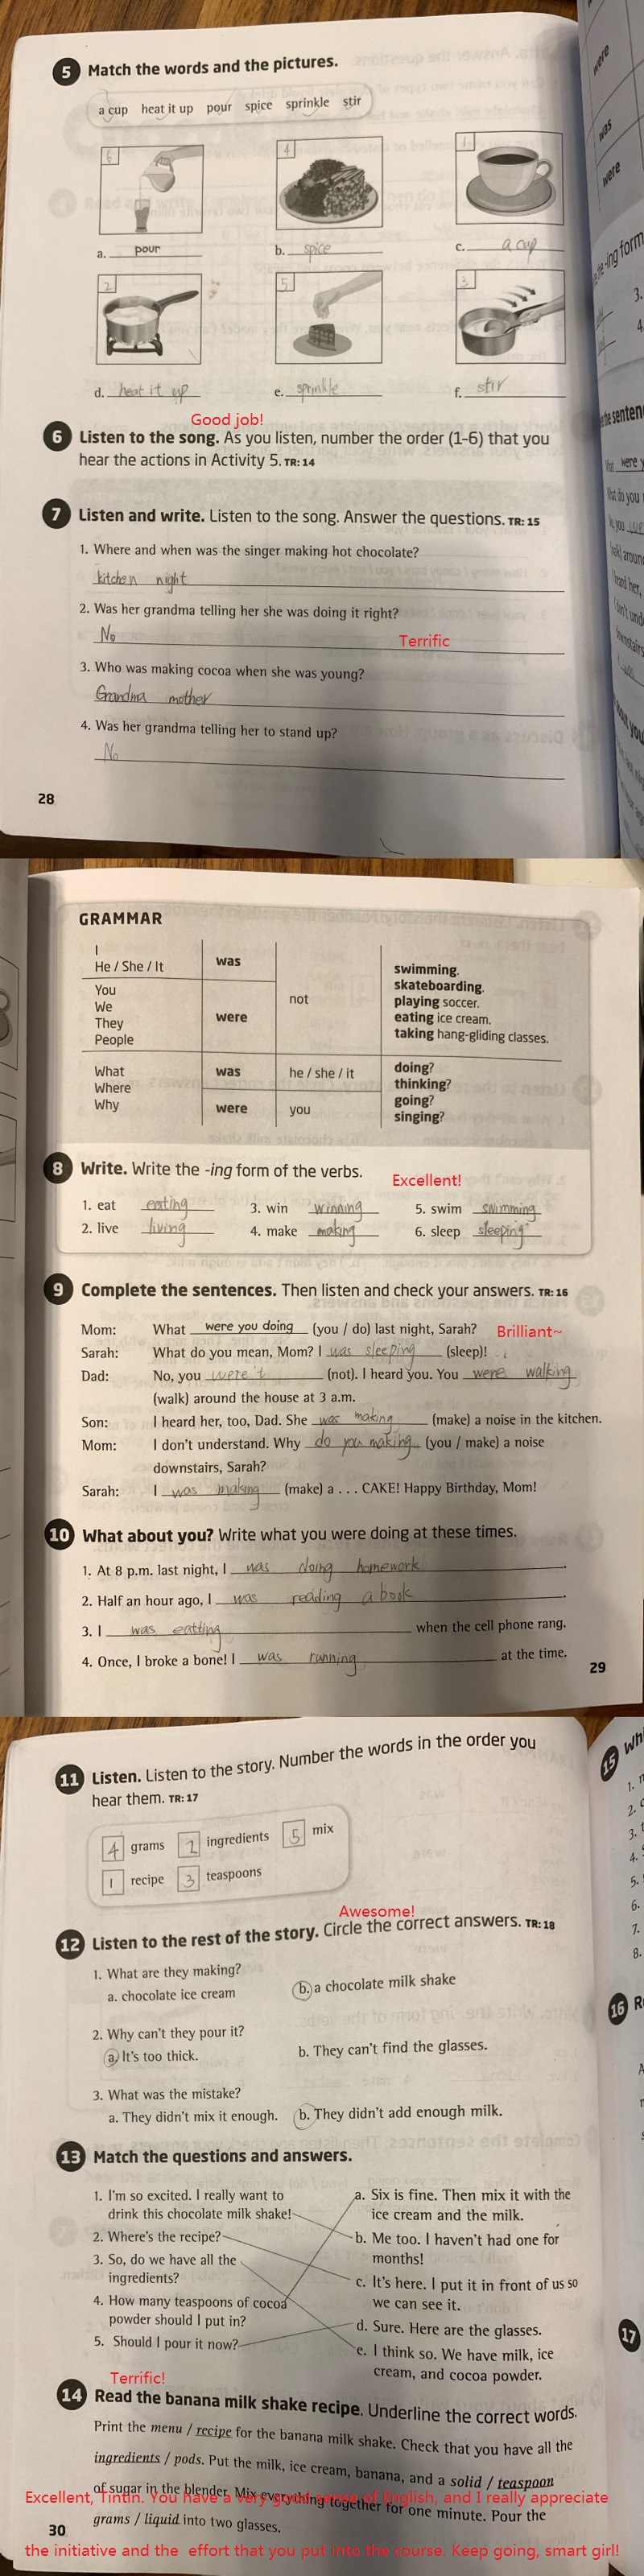 5 Match the words and the pictures.
a cup heat it up pour spice sprinkle stir
6 4 1
a. pour b. spice c. a cup
2 5 3
d. heat it up e. sprinkle f. stir
Good job!
6 Listen to the song. As you listen, number the order (1-6) that you
hear the actions in Activity 5. TR: 14
7 Listen and write. Listen to the song. Answer the questions. TR: 15
1. Where and when was the singer making hot chocolate?
kitchen night
2. Was her grandma telling her she was doing it right?
No
Terrific
3. Who was making cocoa when she was young?
Grandma mother
4. Was her grandma telling her to stand up?
No
28
GRAMMAR
I
He / She / It
was
You
We
They
People
were
not
swimming.
skateboarding.
playing soccer.
eating ice cream.
taking hang-gliding classes.
What
Where
Why
was he / she / it
were you
doing?
thinking?
going?
singing?
8 Write. Write the -ing form of the verbs.
Excellent!
1. eat eating 3. win winning 5. swim swimming
2. live living 4. make making 6. sleep sleeping
9 Complete the sentences. Then listen and check your answers. TR: 16
Mom: What were you doing (you / do) last night, Sarah?
Brilliant~
Sarah: What do you mean, Mom? I was sleeping (sleep)!
Dad: No, you were't (not). I heard you. You were walking
(walk) around the house at 3 a.m.
Son: I heard her, too, Dad. She was making (make) a noise in the kitchen.
Mom: I don't understand. Why do you making (you / make) a noise
downstairs, Sarah?
Sarah: I was making (make) a . . . CAKE! Happy Birthday, Mom!
10 What about you? Write what you were doing at these times.
1. At 8 p.m. last night, I was doing homework.
2. Half an hour ago, I was reading a book.
3. I was eatting when the cell phone rang.
4. Once, I broke a bone! I was running at the time.
29
11 Listen. Listen to the story. Number the words in the order you
hear them. TR: 17
4 grams 2 ingredients 5 mix
1 recipe 3 teaspoons
Awesome!
12 Listen to the rest of the story. Circle the correct answers. TR: 18
1. What are they making?
a. chocolate ice cream b. a chocolate milk shake
2. Why can't they pour it?
a. It's too thick. b. They can't find the glasses.
3. What was the mistake?
a. They didn't mix it enough. b. They didn't add enough milk.
13 Match the questions and answers.
1. I'm so excited. I really want to
drink this chocolate milk shake!
2. Where's the recipe?
3. So, do we have all the
ingredients?
4. How many teaspoons of cocoa
powder should I put in?
5. Should I pour it now?
a. Six is fine. Then mix it with the
ice cream and the milk.
b. Me too. I haven't had one for
months!
c. It's here. I put it in front of us so
we can see it.
d. Sure. Here are the glasses.
e. I think so. We have milk, ice
cream, and cocoa powder.
Terrific!
14 Read the banana milk shake recipe. Underline the correct words.
Print the menu / recipe for the banana milk shake. Check that you have all the
ingredients / pods. Put the milk, ice cream, banana, and a solid / teaspoon
of sugar in the blender. Mix everything together for one minute. Pour the
grams / liquid into two glasses.
Excellent, Tintin. You have a very good sense of English, and I really appreciate
the initiative and the effort that you put into the course. Keep going, smart girl!
30